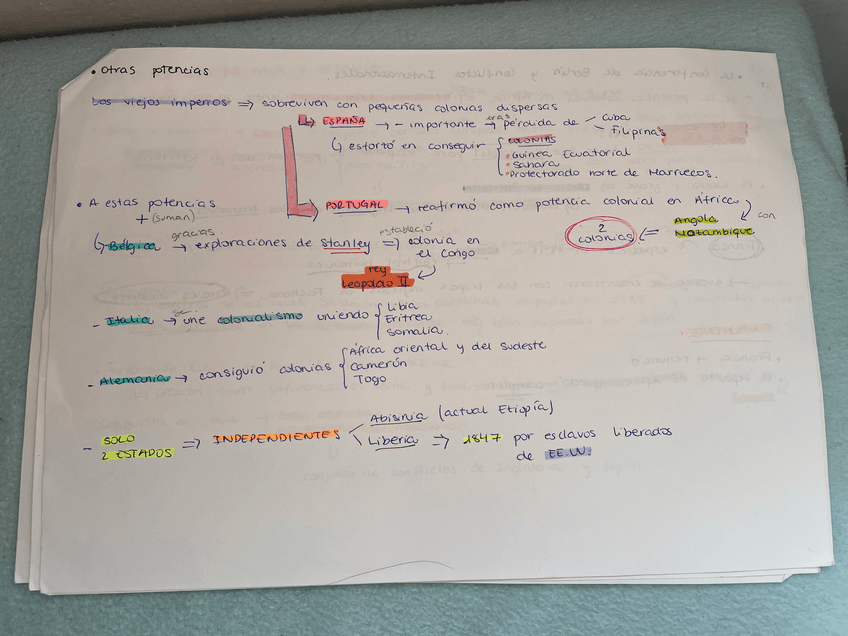 • Otras potencias
Los viejos imperios ⇒ sobreviven con pequeñas colonias dispersas
↳ ESPAÑA → - importante → tras pérdida de Cuba
Filipinas
↳ esforzó en conseguir { COLONIAS
• Guinea Ecuatorial
• Sahara
• Protectorado norte de Marruecos.
↳ PORTUGAL → reafirmó como potencia colonial en África
con
2 colonias = Angola
Mozambique
• A estas potencias
+ (suman)
↳ Bélgica → gracias exploraciones de Stanley ⇒ estableció colonia en
el Congo
rey
Leopoldo II
- Italia → se une colonialismo uniendo { Libia
Eritrea
Somalia.
- Alemania → consiguió colonias { África oriental y del sudeste
Camerón
Togo
- SOLO
2 ESTADOS ⇒ INDEPENDIENTES
Abisinia (actual Etiopía)
Liberia ⇒ 1847 por esclavos liberados
de EE.UU.